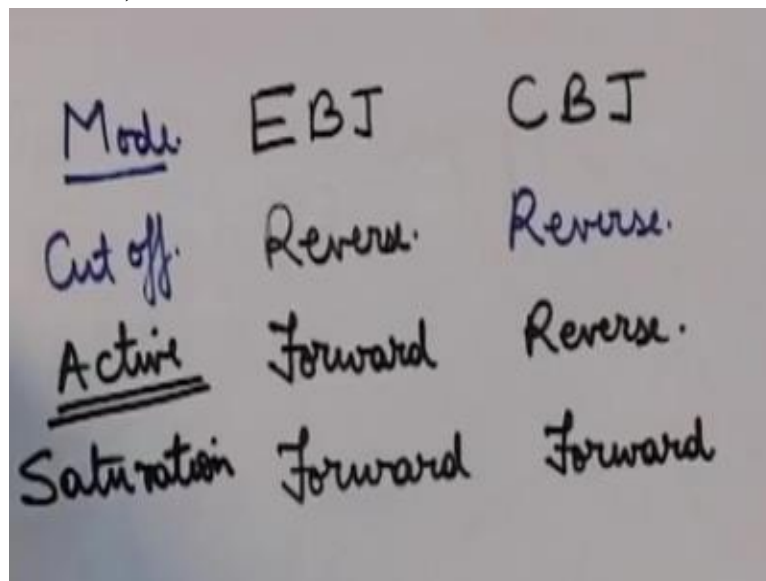 Mode. EBJ CBJ
Cut off. Reverse. Reverse.
Active Forward Reverse.
Saturation Forward Forward